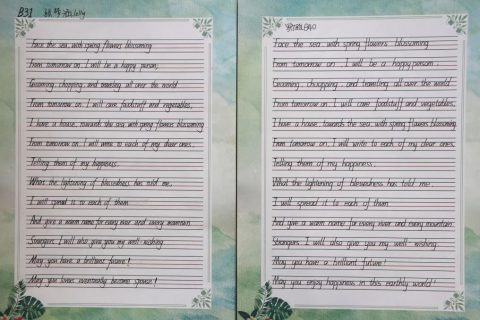 B31
Lolly
Face the sea with spring flowers blossoming
From tomorrow on. I will be a happy person;
Grooming, chopping, and traveling all over the world
From tomorrow on. I will care foodstuff and vegetables,
I have a house, towards the sea with spring flowers blossoming
From tomorrow on. I will write to each of my dear ones.
Telling them of my happiness.
What the lightening of blessedness has told me,
I will spread it to each of them
And give a warm name for every river and every mountain
Strangers I will also give you my well-wishing.
May you have a brilliant future!
May you lovers eventually become spouse!
Face the sea with spring flowers blossoming
From tomorrow on. I will be a happy person;
Grooming, chopping, and traveling all over the world
From tomorrow on. I will care foodstuff and vegetables,
I have a house, towards the sea with spring flowers blossoming
From tomorrow on. I will write to each of my dear ones,
Telling them of my happiness.
What the lightening of blessedness has told me.
I will spread it to each of them
And give a warm name for every river and every mountain
Strangers I will also give you my well wishing.
May you have a brilliant future!
May you enjoy happiness in this earthly world!